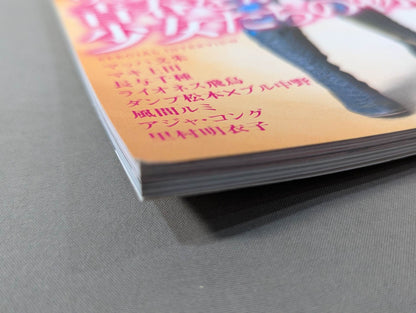 少女たちの
SPECIAL INTERVIEW
マッハ文朱
マキ上田
長与千種
ライオネス飛鳥
ダンプ松本×ブル中野
風間ルミ
アジャ・コング
里村明衣子